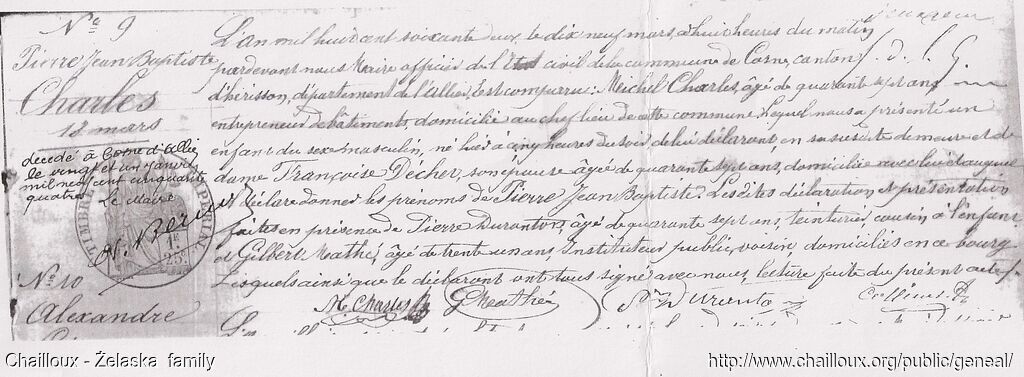 N° 9
Pierre Jean Baptiste
Charles
18 mars
décédé à Cosne d'Allier
le vingt et un janvier
mil neuf cent cinquante
quatre
Le Maire
TIMBRE IMPERIAL
1F
25c
N° 10
Alexandre
L'an mil huit cent soixante deux, le dix neuf mars, à huit heures du matin
pardevant nous Maire officier de l'Etat civil de la commune de Cosne, canton
d'hérisson, département de l'allier, Est comparu: Michel Charles, âgé de quarante sept ans
entrepreneur de bâtiments, domicilié au chef lieu de cette commune. Lequel nous a présenté un
enfant du sexe masculin, né hier à cinq heures du soir, de lui déclarant, en sa susdite demeure et de
dame Françoise Décher, son épouse âgée de quarante sept ans, domiciliée avec lui et auquel
il déclare donner les prénoms de Pierre Jean Baptiste. Les dites déclaration et présentation
faites en présence de Pierre Duranton, âgé de quarante sept ans, teinturier, cousin à l'enfant
et Gilbert Mathé, âgé de trente un ans, Instituteur public, voisin, domiciliés en ce bourg.
Lesquels ainsi que le déclarant ont tous signé avec nous, lecture faite du présent acte.
M. Charles G Mathé
Chailloux - Żelaska family
http://www.chailloux.org/public/geneal/